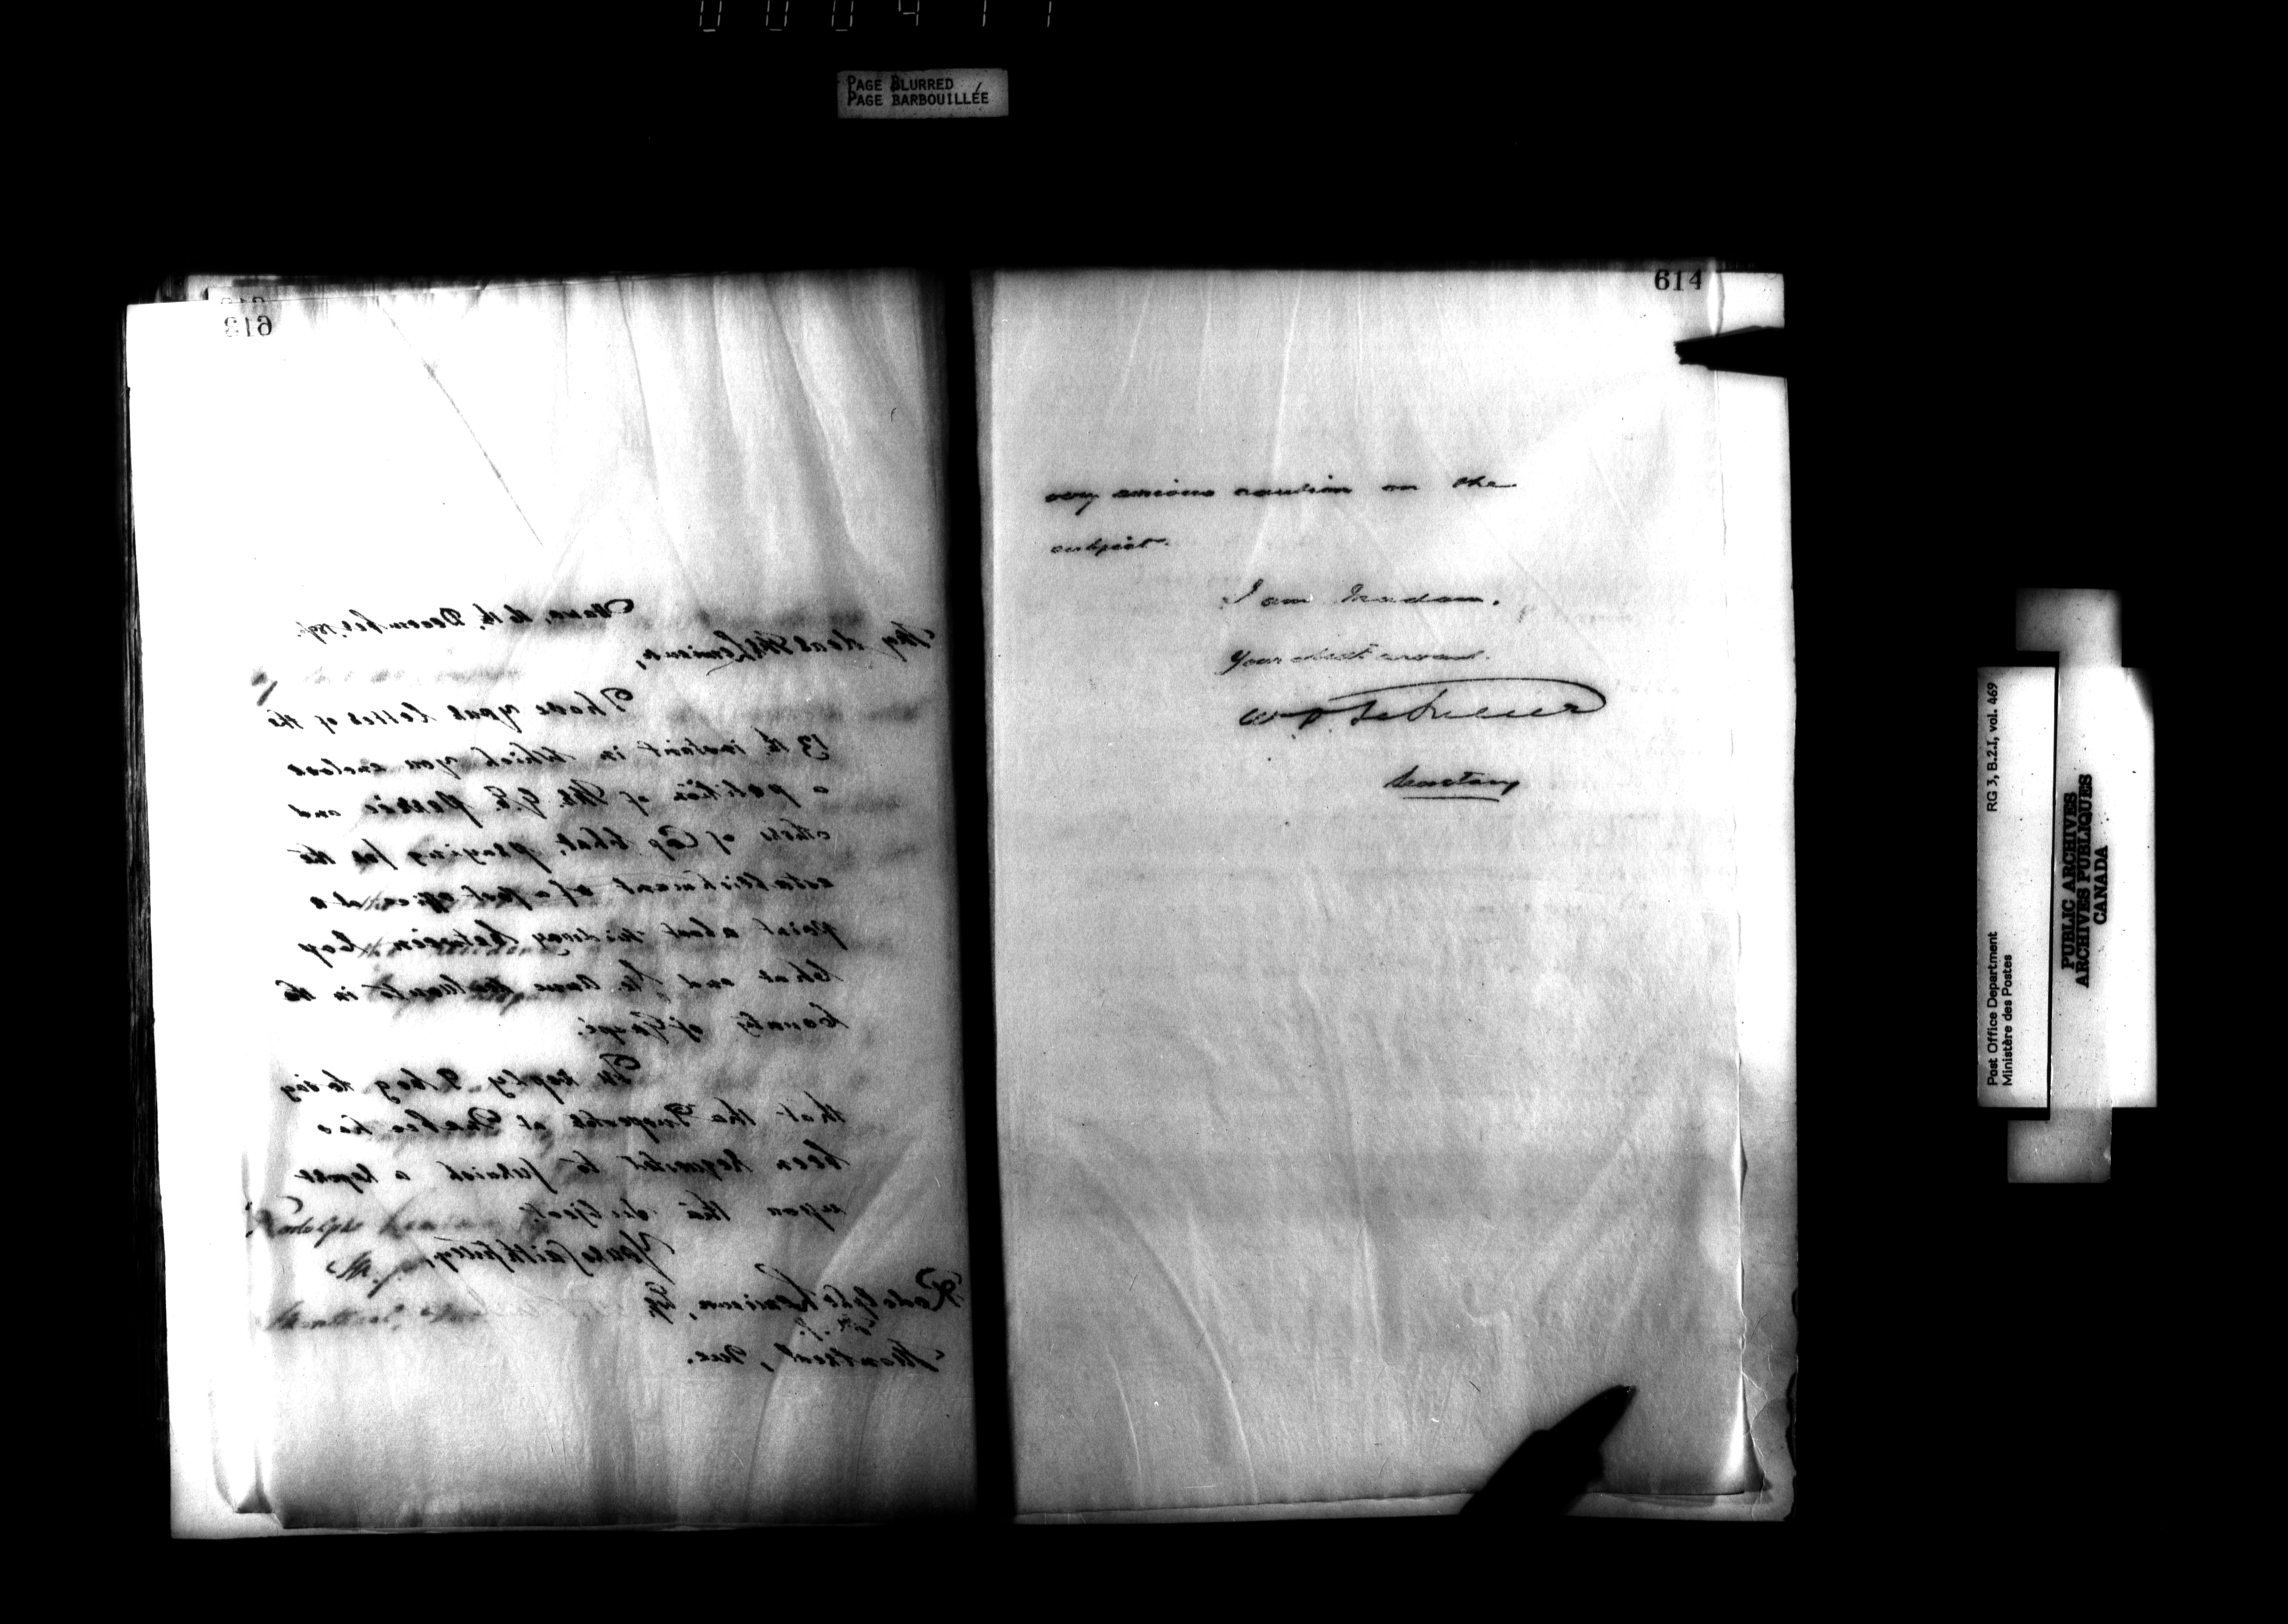 PAGE BLURRED
PAGE BARBOUILLÉE
613
Ottawa, 16th December,
My dear Mr Lemieux,
I have your letter of the
13th instant in which you enclose
a petition of Mr. and
others of Cap Chat, praying for the
establishment of a post office at a
point about midway between Cap
Chat and Ste. Anne des Monts in the
County of Gaspé.
In reply, I beg to say
that the Inspector at Quebec has
been requested to furnish a report
upon the subject.
Yours faithfully,
Rodolphe Lemieux, Esq.
M.P.
Montreal, Que.
614
very serious caution on the
subject.
I am Madam,
Your obedt servant.
W. D. LeSueur
Secretary
RG 3, B.2.I, vol. 469
Post Office Department
Ministère des Postes
PUBLIC ARCHIVES
ARCHIVES PUBLIQUES
CANADA